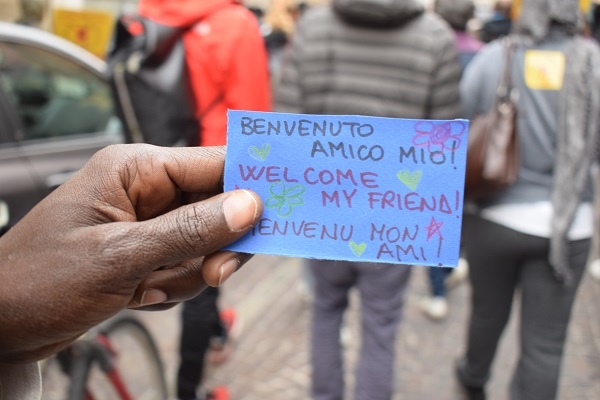 BENVENUTO
AMICO MIO!
WELCOME
MY FRIEND!
IENVENU MON
AMI!